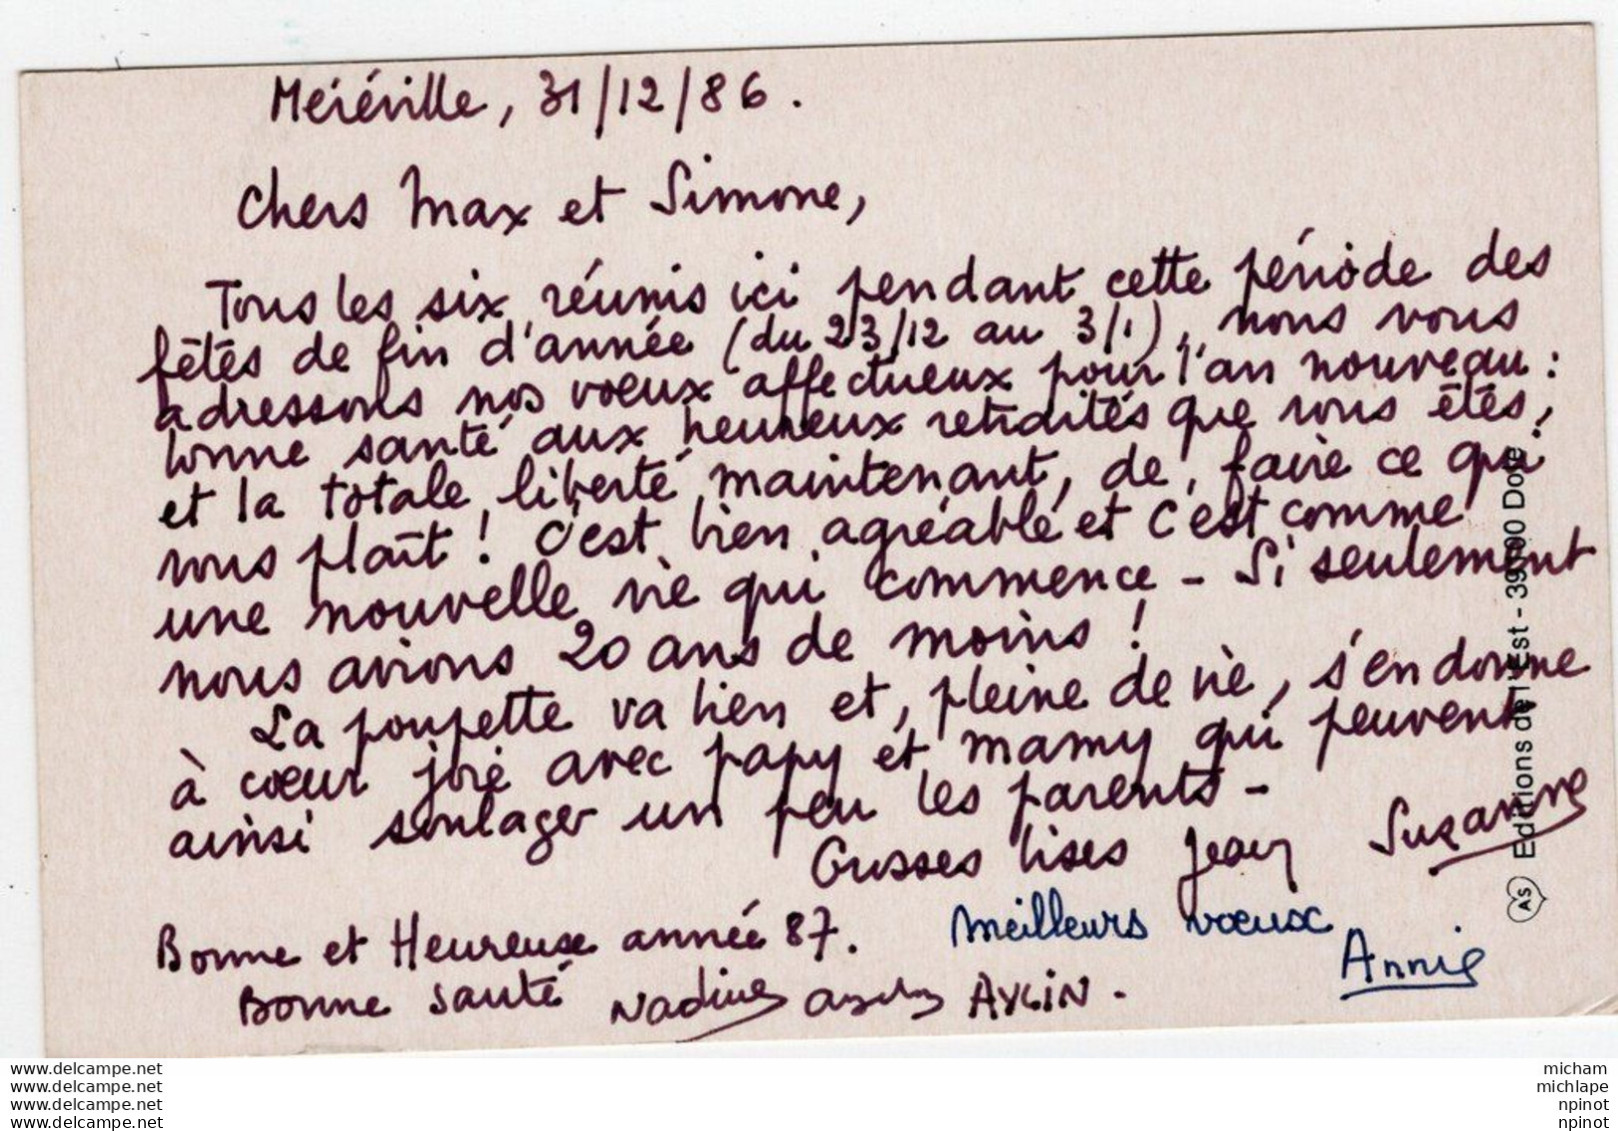 Méréville, 31/12/86.
Chers Max et Simone,
Tous les six, réunis ici pendant cette période des
fêtes de fin d'année (du 23/12 au 3/1), nous vous
adressons nos voeux affectueux pour l'an nouveau :
bonne santé aux heureux retraités que vous êtes,
et la totale liberté, maintenant, de faire ce qui
vous plaît ! C'est bien agréable et c'est comme
une nouvelle vie qui commence - Si seulement
nous avions 20 ans de moins !
La poupette va bien et, pleine de vie, s'en donne
à coeur joie avec papy et mamy qui peuvent
ainsi soulager un peu les parents -
Grosses bises Jean Suzanne
Bonne et Heureuse année 87. Meilleurs voeux
Annie
Bonne santé Nadine AYLIN.
Editions de l'Est - 39100 Dole
AS
www.delcampe.net
www.delcampe.net
www.delcampe.net
www.delcampe.net
micham
michlape
npinot
npinot